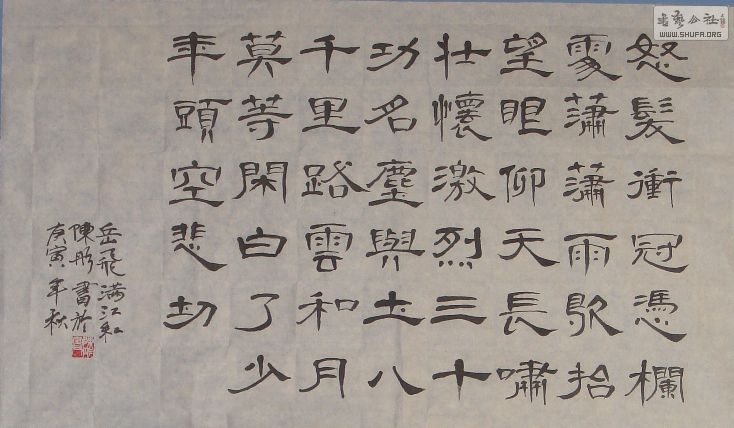 怒髮衝冠憑欄
處瀟瀟雨歇拾
望眼仰天長嘯
壯懷激烈三十
功名塵與土八
千里路雲和月
莫等閑白了少
年頭空悲切
岳飛满江紅
陳彤書於
庚寅年秋
书艺公社
WWW.SHUFA.ORG